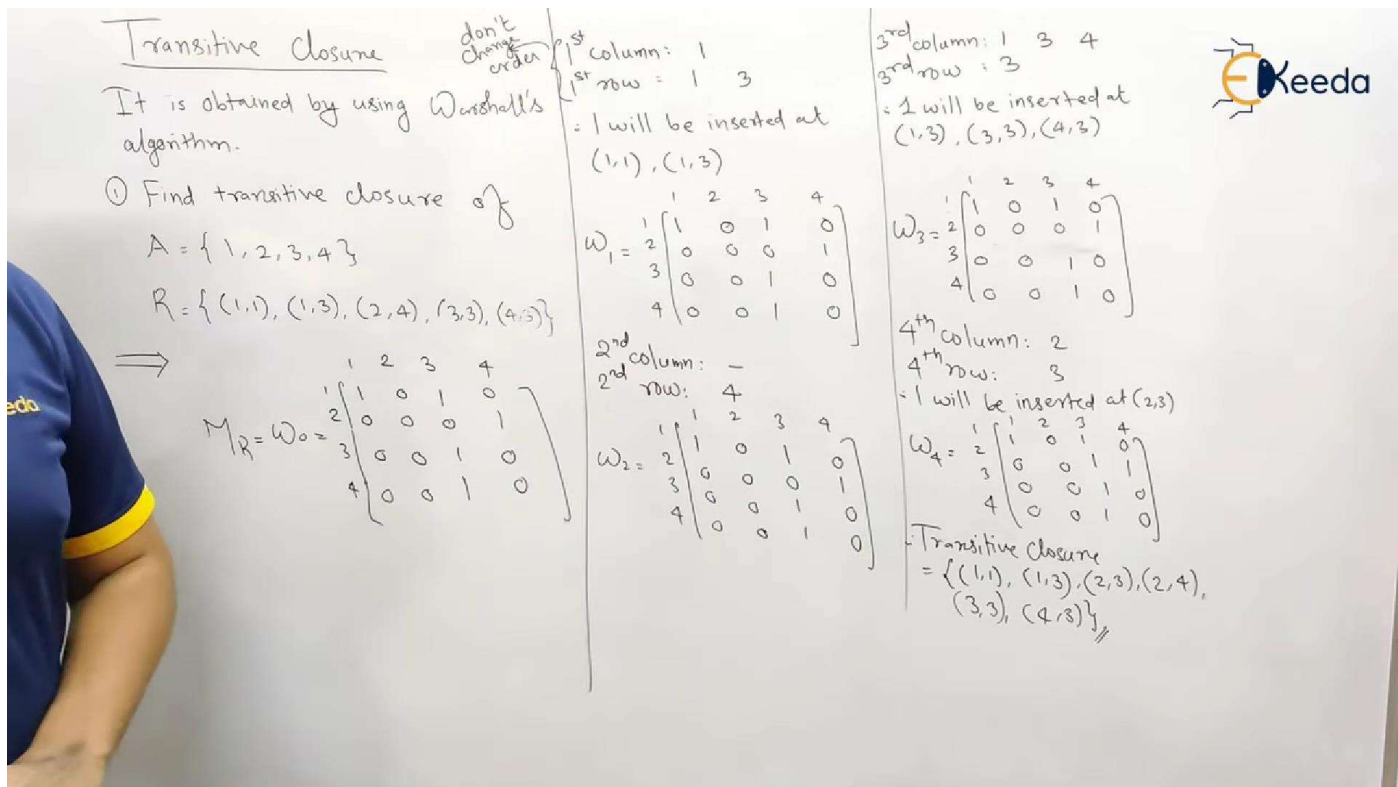 Transitive Closure
It is obtained by using Warshall's
algorithm.
① Find transitive closure of
A = {1, 2, 3, 4}
R = {(1,1), (1,3), (2,4), (3,3), (4,3)}
⇒
1 2 3 4
1 1 0 1 0
2 0 0 0 1
M_R = W₀ =
3 0 0 1 0
4 0 0 1 0
don't
change
order
1st column: 1
1st row: 1 3
∴ 1 will be inserted at
(1,1), (1,3)
1 2 3 4
1 1 0 1 0
W₁ = 2 0 0 0 1
3 0 0 1 0
4 0 0 1 0
2nd column: –
2nd row: 4
1 2 3 4
1 1 0 1 0
W₂ = 2 0 0 0 1
3 0 0 1 0
4 0 0 1 0
3rd column: 1 3 4
3rd row: 3
∴ 1 will be inserted at
(1,3), (3,3), (4,3)
1 2 3 4
1 1 0 1 0
W₃ = 2 0 0 0 1
3 0 0 1 0
4 0 0 1 0
4th column: 2
4th row: 3
∴ 1 will be inserted at (2,3)
1 2 3 4
1 1 0 1 0
W₄ = 2 0 0 1 1
3 0 0 1 0
4 0 0 1 0
∴ Transitive Closure
= {(1,1), (1,3), (2,3), (2,4),
(3,3), (4,3)}
EKeeda
eda